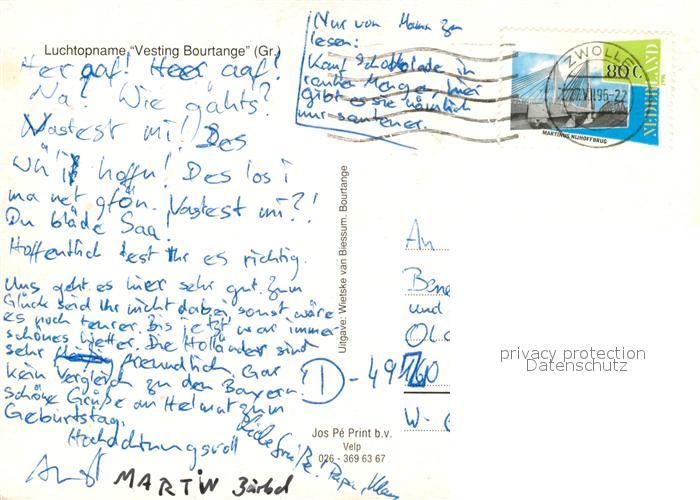 Luchtopname "Vesting Bourtange" (Gr.)
Her auf! Heer auf!
Na! Wie gahts?
Vastest mi! Des
will i hoffn! Des los i
ma net gfoln. Vastest mi?!
Du bläde Sau!
Hoffentlich lest Ihr es richtig.
Uns geht es hier sehr gut. Zum
Glück seid Ihr nicht dabei, sonst wäre
es noch teurer. Bis jetzt war immer
schönes Wetter. Die Holländer sind
sehr freundlich. Gar
kein Vergleich zu den Bayern.
schöne Grüße an Helmut zum
Geburtstag.
Hochachtungsvoll
Liebe Grüße! Papa, Klaus
MARTIN Bärbel
Nur von Mama zu
lesen:
Kauf Schokolade in
Mengen, hier
gibt es sie nämlich
nur
Uitgave: Wietske van Biessum. Bourtange
Jos Pé Print b.v.
Velp
026 - 369 63 67
ZWOLLE
80 c.
NEDERLAND
1996
MARTINUS NIJHOFFBRUG
An
Bene
und
OLO
D - 49760
W-
privacy protection
Datenschutz